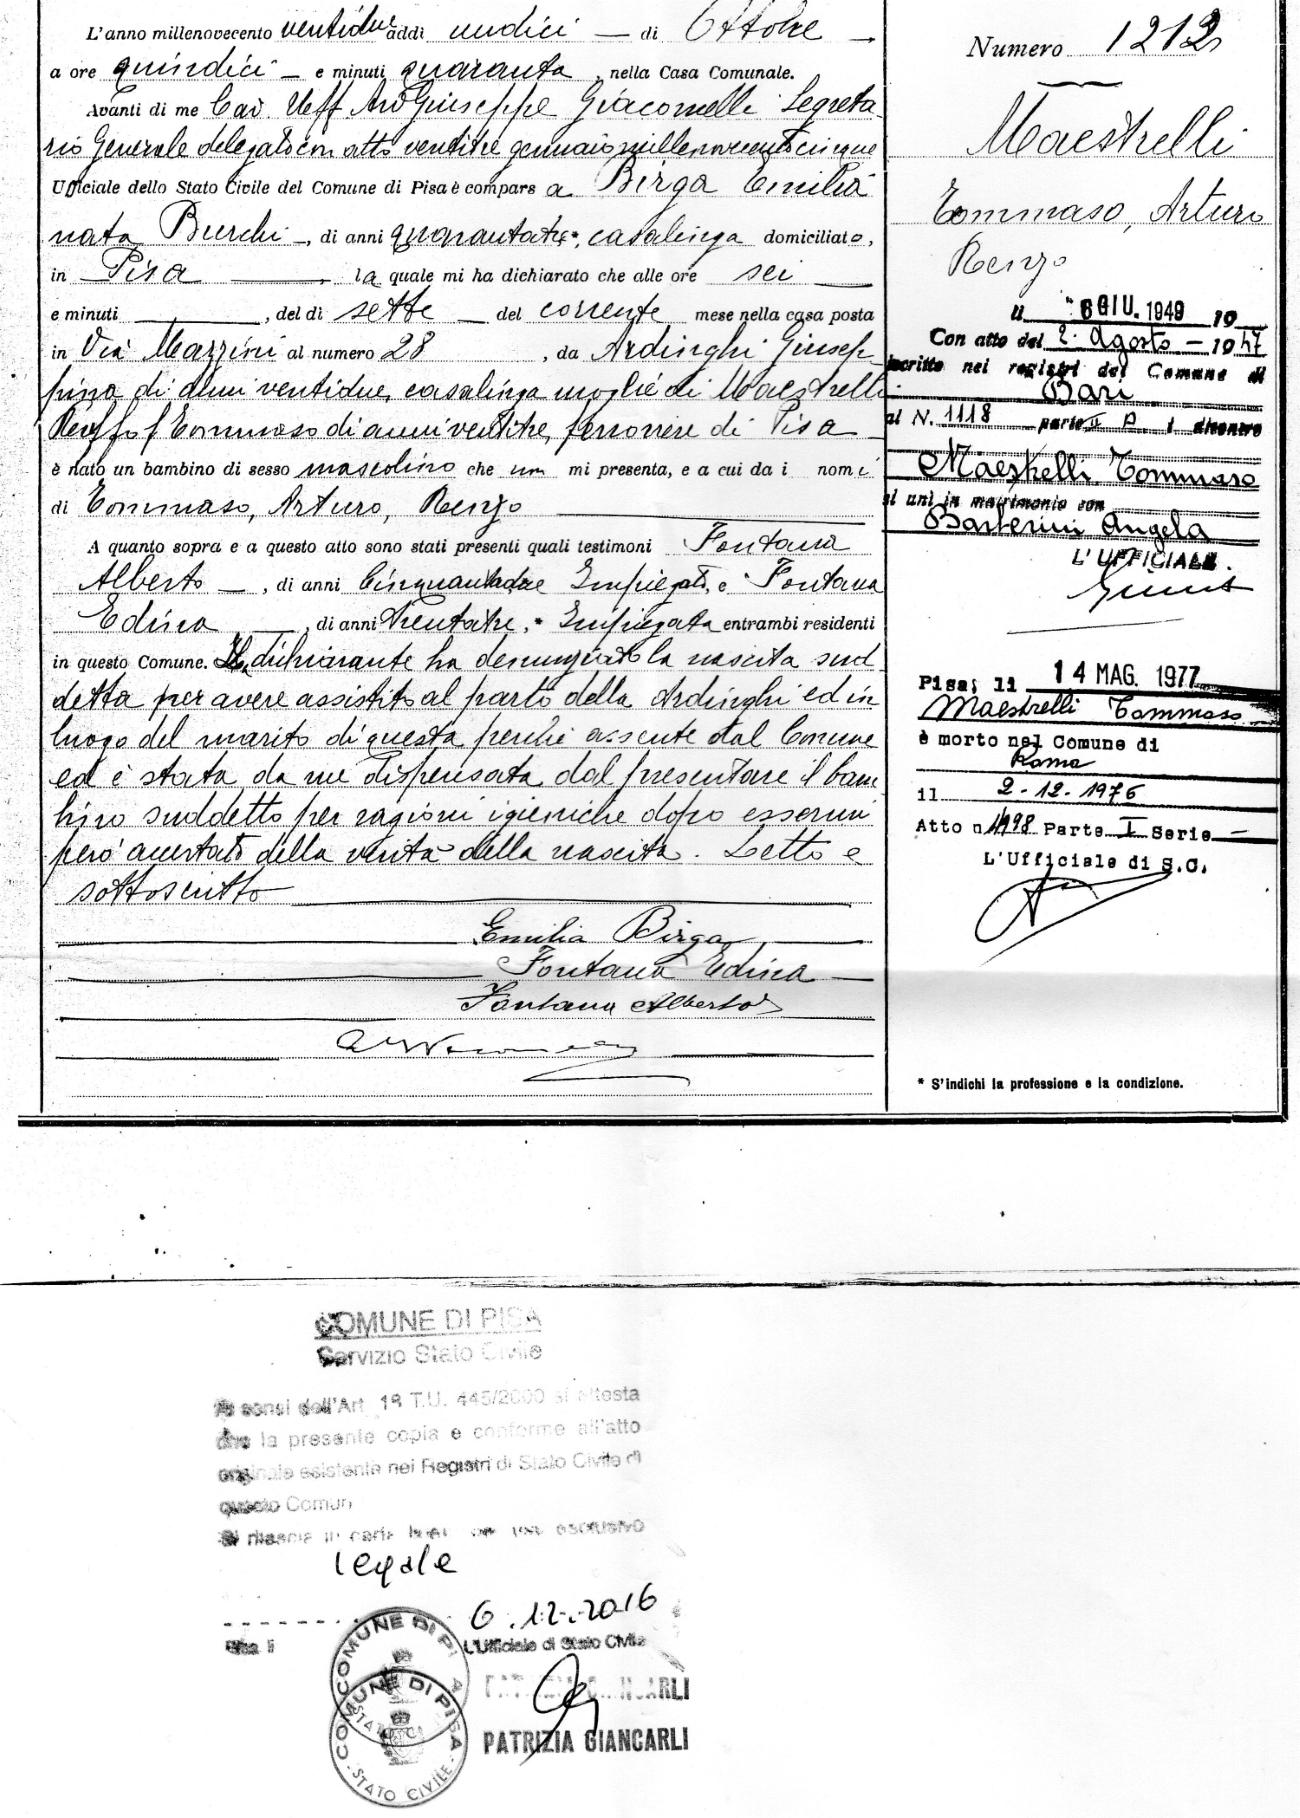 L'anno millenovecento ventidue addì undici — di Ottobre —
a ore quindici — e minuti quaranta, nella Casa Comunale.
Avanti di me Cav. Uff Avv Giuseppe Giacomelli Segreta-
rio Generale delegato con atto ventitre gennaio millenovecentocinque
Ufficiale dello Stato Civile del Comune di Pisa è compars a Birga Emilia
nata Burchi —, di anni quarantatre*, casalinga domiciliata,
in Pisa —, la quale mi ha dichiarato che alle ore sei —
e minuti —, del dì sette — del corrente mese nella casa posta
in Via Mazzini al numero 28, da Ardinghi Giusep-
pina di anni ventidue, casalinga moglie di Maestrelli
f Tommaso di anni ventitre, ferroviere di Pisa
è nato un bambino di sesso mascolino che un mi presenta, e a cui da i nomi
di Tommaso, Arturo, Renzo —
A quanto sopra e a questo atto sono stati presenti quali testimoni Fontana
Alberto —, di anni Cinquantadue Impiegato, e Fontana
Edina —, di anni trentatre,* Impiegata entrambi residenti
in questo Comune. La dichiarante ha denunziato la nascita sud-
detta per avere assistito al parto della Ardinghi ed in
luogo del marito di questa perchè assente dal Comune
ed è stata da me dispensata dal presentare il bam-
bino suddetto per ragioni igieniche dopo essermi
però accertato della verità della nascita. Letto e
sottoscritto —
Emilia Birga
Fontana Edina
Fontana Alberto
Numero 1212
Maestrelli
Tommaso, Arturo
Renzo
lì 6 GIU. 1949 19
Con atto del 2. Agosto - 1947
iscritto nei registri del Comune di
Bari
al N. 1118 parte II A il discontro
Maestrelli Tommaso
si unì in matrimonio con
Barberini Angela
L'UFFICIALE.
Pisa, li 14 MAG. 1977
Maestrelli Tommaso
è morto nel Comune di
Roma
il 2-12-1976
Atto n 1998 Parte I Serie —
L'Ufficiale di S.C.
* S'indichi la professione e la condizione.
COMUNE DI PISA
Servizio Stato Civile
Ai sensi dell'Art. 18 T.U. 445/2000 si attesta
che la presente copia è conforme all'atto
originale esistente nei Registri di Stato Civile di
questo Comun
Si rilascia in carta esclusivo
legale
6.12.2016
Pisa lì L'Ufficiale di Stato Civile
PATRIZIA GIANCARLI
PATRIZIA GIANCARLI
COMUNE DI PISA
STATO CIVILE
COMUNE DI PISA
STATO CIVILE